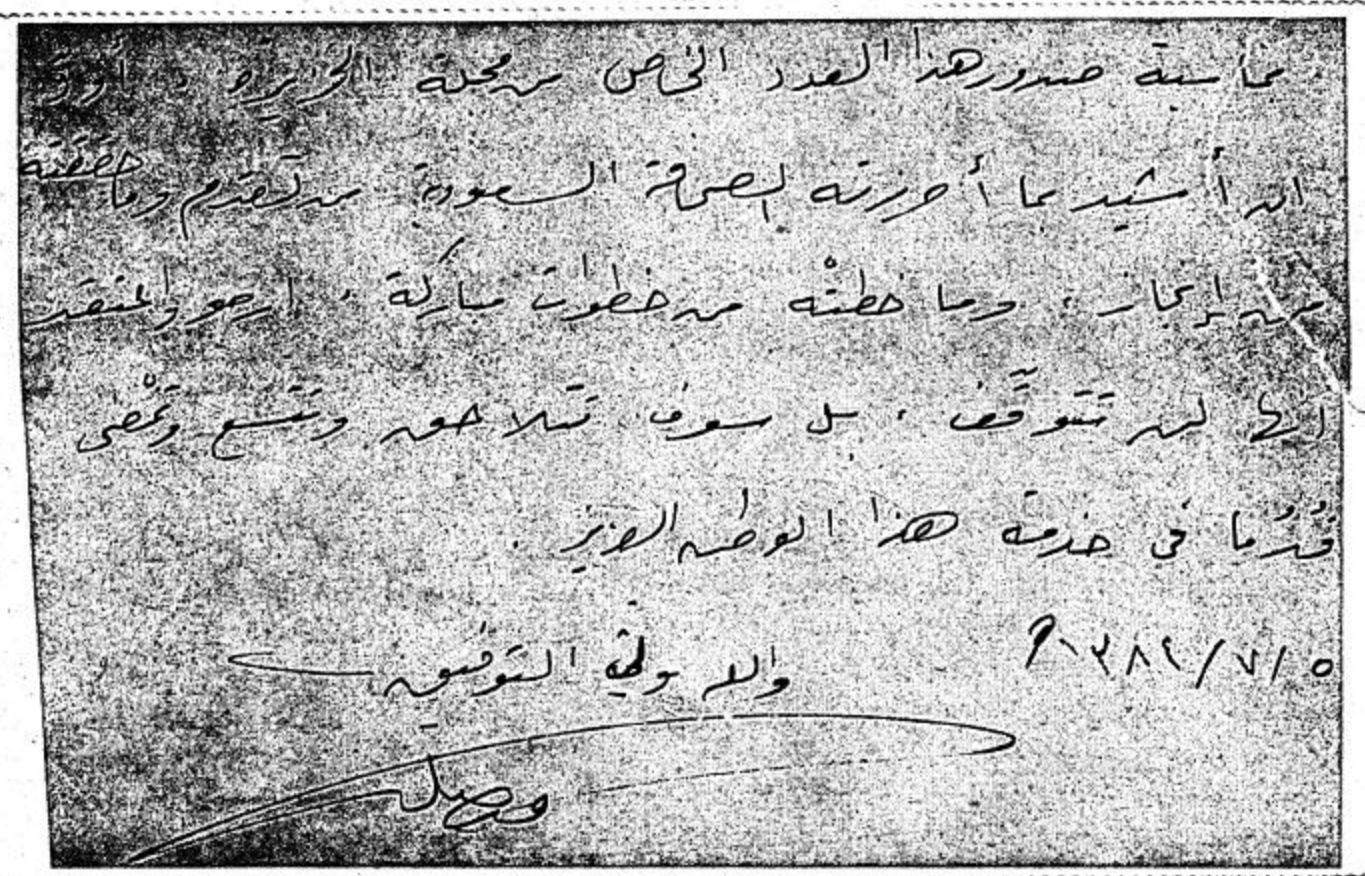 بمناسبة صدور هذا العدد الخاص من مجلة الجزيرة ، أود
ان أشيد بما أحرزته الصحافة السعودية من تقدم وما حققته
من إنجاز ، وما خطتْه من خطوات مباركة ، ارجو واعتقد
انها لن تتوقّف ، بل سوف تتلاحق وتتسع وتمْضى
قُدُمًا في خدمة هذا الوطن العزيز .
والله ولي التوفيق
٥/٧/١٣٨٤هـ
فيصل